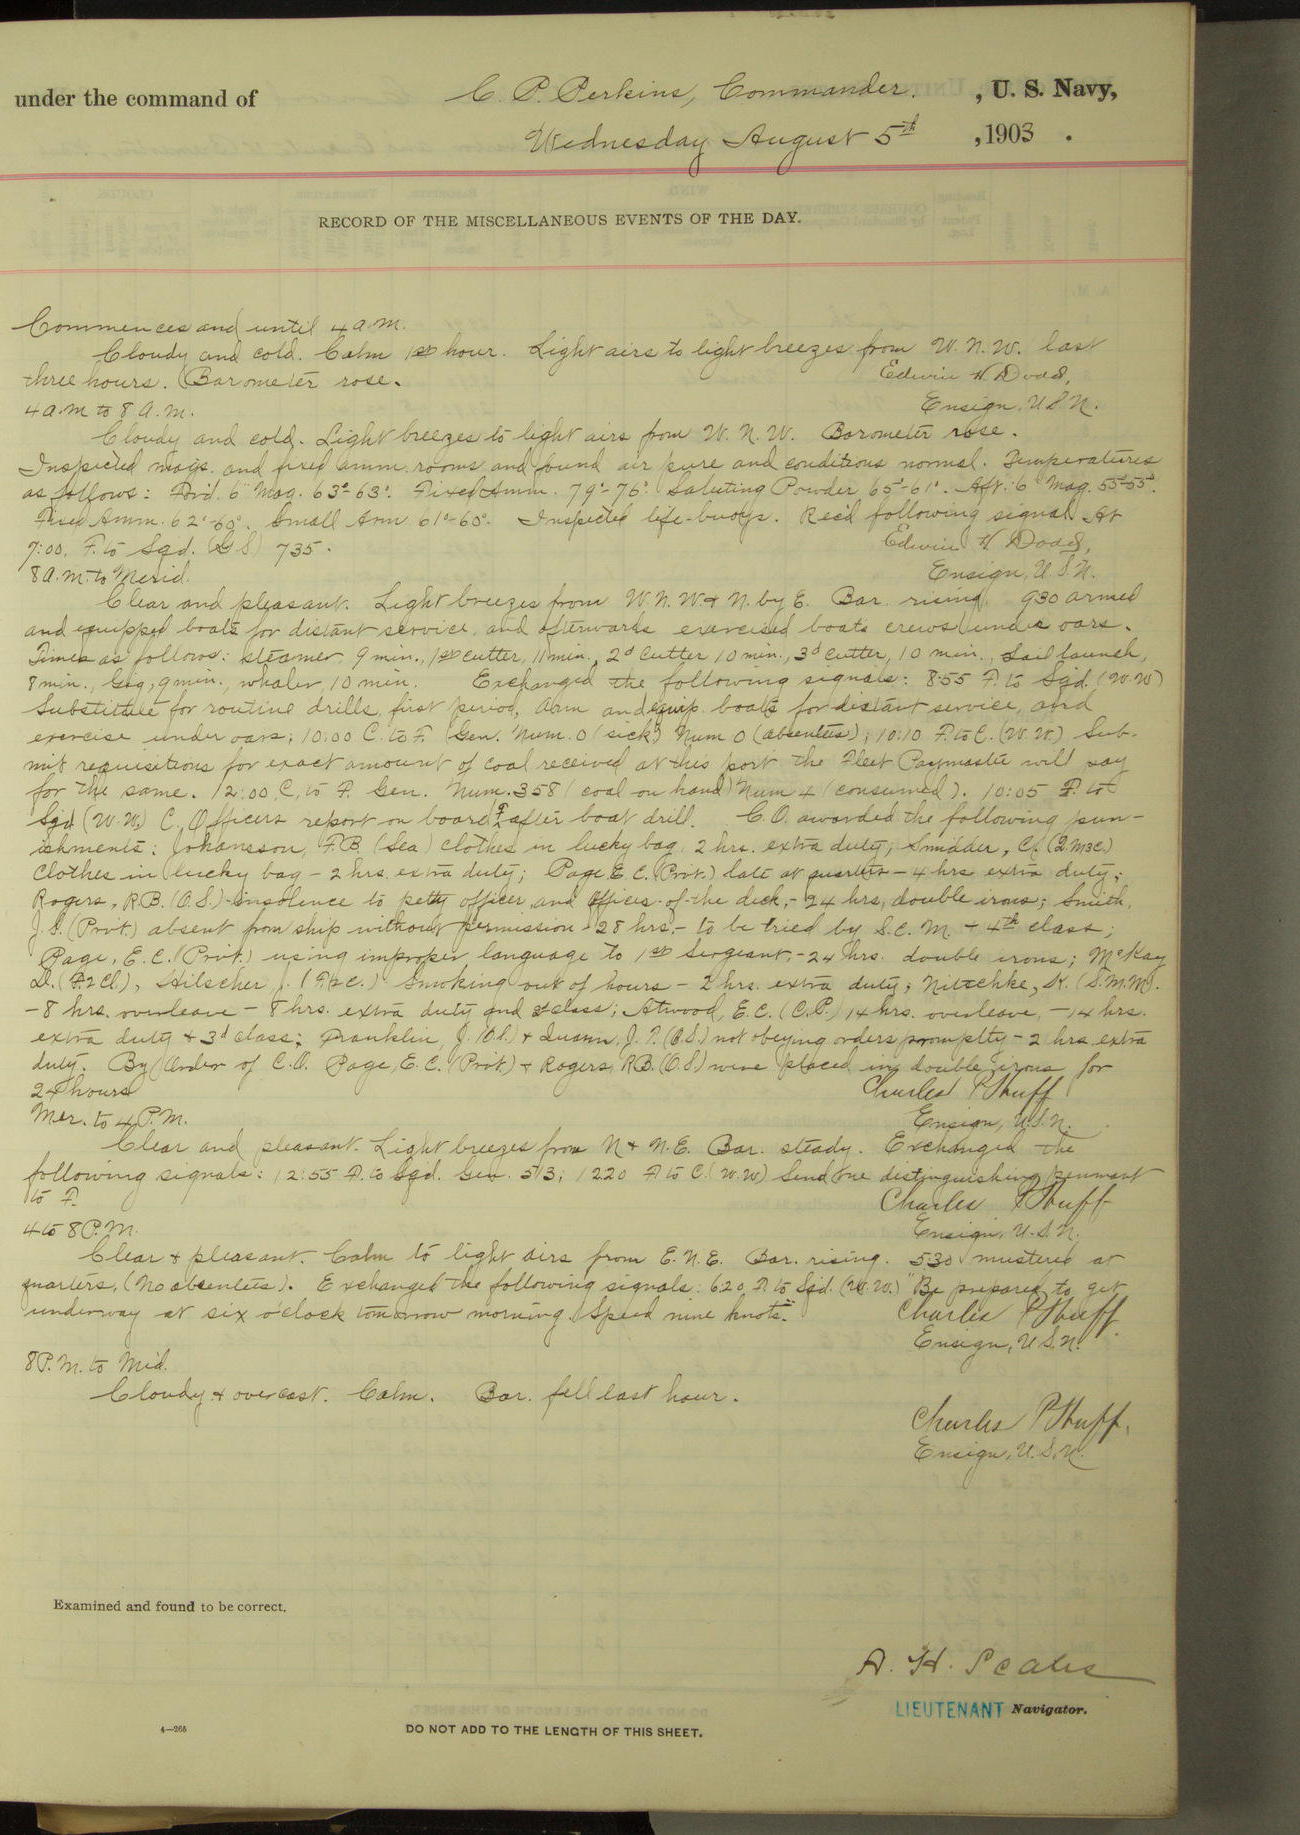 under the command of C. P. Perkins, Commander. , U. S. Navy,
Wednesday August 5th , 1903 .
RECORD OF THE MISCELLANEOUS EVENTS OF THE DAY.
Commences and until 4 a.m.
Cloudy and cold. Calm 1st hour. Light airs to light breezes from W. N. W. last
three hours. Barometer rose.
Edwin H. Dodd,
4 a.m to 8 A.m.
Ensign, U.S.N.
Cloudy and cold. Light breezes to light airs from W. N. W. Barometer rose.
Inspected mags. and fixed amm. rooms and found air pure and conditions normal. Temperatures
as follows: For'd. 6" Mag. 63°-63°. Fixed Amm. 79°-76°. Saluting Powder 65°-61°. Aft. 6" Mag. 55°-55°.
Fixed Amm. 62°-60°. Small Arm 61°-60°. Inspected life-buoys. Rec'd following signal At
7:00. F. to Sqd. (G S) 735.
Edwin H Dodd,
8 A.m. to Merid.
Ensign, U.S.N.
Clear and pleasant. Light breezes from W. N. W. & N. by E. Bar. rising. 930 armed
and equipped boats for distant service and afterwards exercised boats crews under oars.
Times as follows: Steamer, 9 min., 1st cutter, 11 min., 2d Cutter 10 min., 3d Cutter, 10 min., Sail launch,
8 min., Gig, 9 min., whaler, 10 min. Exchanged the following signals: 8:55 F. to Sqd. (W.W)
Substitute for routine drills, first period, Arm and equip boats for distant service, and
exercise under oars; 10:00 C. to F. Gen. Num. 0 (sick) Num 0 (absentees); 10:10 F. to C. (W.W.) Sub-
mit requisitions for exact amount of coal received at this port the Fleet Paymaster will pay
for the same. 12:00 C. to F. Gen. Num. 358 (coal on hand) Num 4 (consumed). 10:05 F. to
Sqd (W.W.) C. Officers report on board F after boat drill. C.O. awarded the following pun-
ishments: Johansson, F.B. (Sea) clothes in lucky bag, 2 hrs. extra duty; Smidder, C. (Q.M3C.)
Clothes in lucky bag - 2 hrs. extra duty; Page, E. C. (Prvt.) late at quarters - 4 hrs extra duty;
Rogers, R.B. (O.S.) - insolence to petty officer and officer-of-the deck, - 24 hrs, double irons; Smith,
J. S. (Prvt.) absent from ship without permission - 28 hrs, - to be tried by S.C. M. + 4th class;
Page, E. C. (Prvt.) using improper language to 1st Sergeant, - 24 hrs. double irons; McKay
D. (F.2Cl.), Hilscher, J. (F.2c.) Smoking out of hours - 2 hrs. extra duty; Nitschke, K. (S.M.M).
- 8 hrs. overleave - 8 hrs. extra duty and class; Atwood, E.C. (C.P.) 14 hrs. overleave, - 14 hrs.
extra duty & 3d class; Franklin, J. & J. F. (O.S.) not obeying orders promptly - 2 hrs. extra
duty. By Order of C.O. Page, E. C. (Prvt.) & Rogers, R.B. (O.S) were placed in double irons for
24 hours
Charles P Huff
Mer. to 4 P.M.
Ensign, U.S.N.
Clear and pleasant. Light breezes from N & N.E. Bar. steady. Exchanged the
following signals: 12:55 F. to Sqd. Gen. 513; 1220 F. to C. (W.W) Send one distinguishing pennant
to F.
Charles P Huff
4 to 8 P.M.
Ensign, U.S.N.
Clear & pleasant. Calm to light airs from E.N.E. Bar. rising. 530 mustered at
quarters, (No absentees). Exchanged the following signals: 620 F. to Sqd. (W.W.) "Be prepared to get
underway at six o'clock tomorrow morning. Speed nine knots."
Charles P Huff
Ensign, U.S.N.
8 P.M. to Mid.
Cloudy & overcast. Calm. Bar. fell last hour.
Charles P Huff,
Ensign, U.S.N.
Examined and found to be correct.
A. H. Scales
LIEUTENANT Navigator.
4—265
DO NOT ADD TO THE LENGTH OF THIS SHEET.